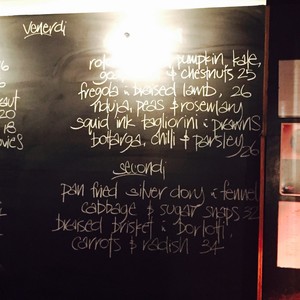 Venerdi
pumpkin, kale,
& chestnuts 25
fregola & braised lamb, 26
nduja, peas & rosemary
squid ink tagliorini & prawns
bottarga, chilli & parsley
26
secondi
pan fried silver dory & fennel
cabbage & sugar snaps 32
braised brisket & borlotti
carrots & radish 34
20
18